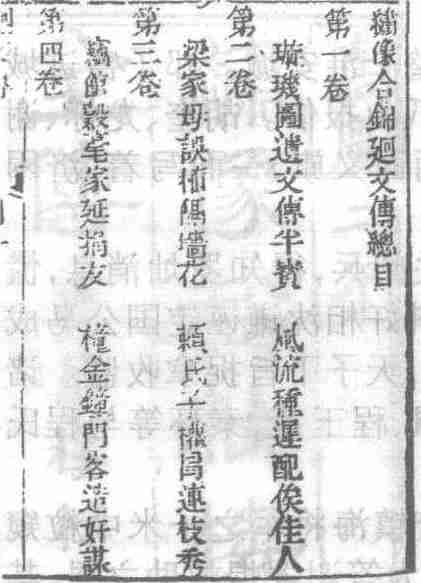 繡像合錦廻文傳總目
第一卷
璇璣圖遺文傳半寶 風流種遲配俟佳人
第二卷
梁家母誤植隔墻花 賴氏子權冒連枝秀
第三卷
家延捐友 權金 門客造奸謀
第四卷